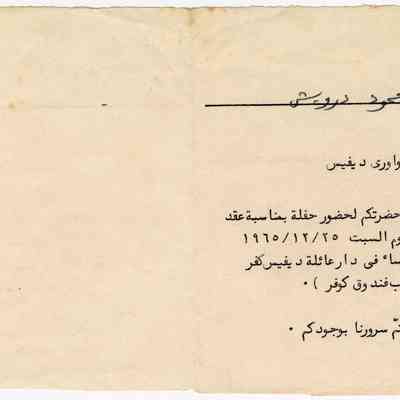 محمود درويش
واورى ديفيس
حضرتكم لحضور حفلة بمناسبة عقد
وم السبت ١٩٦٥/١٢/٢٥
ساء فى دار عائلة ديفيس كفر
ب فندوق كوفر ) ٠
تمّ سرورنا بوجودكم ٠